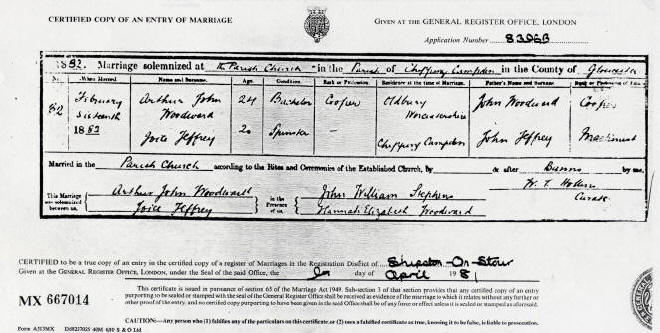 CERTIFIED COPY OF AN ENTRY OF MARRIAGE
GIVEN AT THE GENERAL REGISTER OFFICE, LONDON
Application Number
1882. Marriage solemnized at the Parish Church in the Parish of Chipping Campden in the County of Gloucester
No. When Married. Name and Surname. Age. Condition. Rank or Profession. Residence at the time of Marriage. Father's Name and Surname. Rank or Profession of Father.
82 February Sixteenth 1882 Arthur John Woodward 24 Bachelor Cooper Oldbury Worcestershire John Woodward Cooper
Joice Jeffrey 20 Spinster — Chipping Campden John Jeffrey Machinist
Married in the Parish Church according to the Rites and Ceremonies of the Established Church, by & after Banns by me,
This Marriage was solemnized between us, Arthur John Woodward Joice Jeffrey in the Presence of us, John William Stephens Hannah Elizabeth Woodward W. T. Curate
CERTIFIED to be a true copy of an entry in the certified copy of a register of Marriages in the Registration District of Shipston-On-Stour
Given at the GENERAL REGISTER OFFICE, LONDON, under the Seal of the said Office, the day of April 1981
MX 667014
This certificate is issued in pursuance of section 65 of the Marriage Act 1949. Sub-section 3 of that section provides that any certified copy of an entry
purporting to be sealed or stamped with the seal of the General Register Office shall be received as evidence of the marriage to which it relates without any further or
other proof of the entry, and no certified copy purporting to have been given in the said Office shall be of any force or effect unless it is sealed or stamped as aforesaid.
CAUTION:—Any person who (1) falsifies any of the particulars on this certificate, or (2) uses a falsified certificate as true, knowing it to be false, is liable to prosecution.
Form A513MX Dd8237025 40M 6/80 S & O Ltd